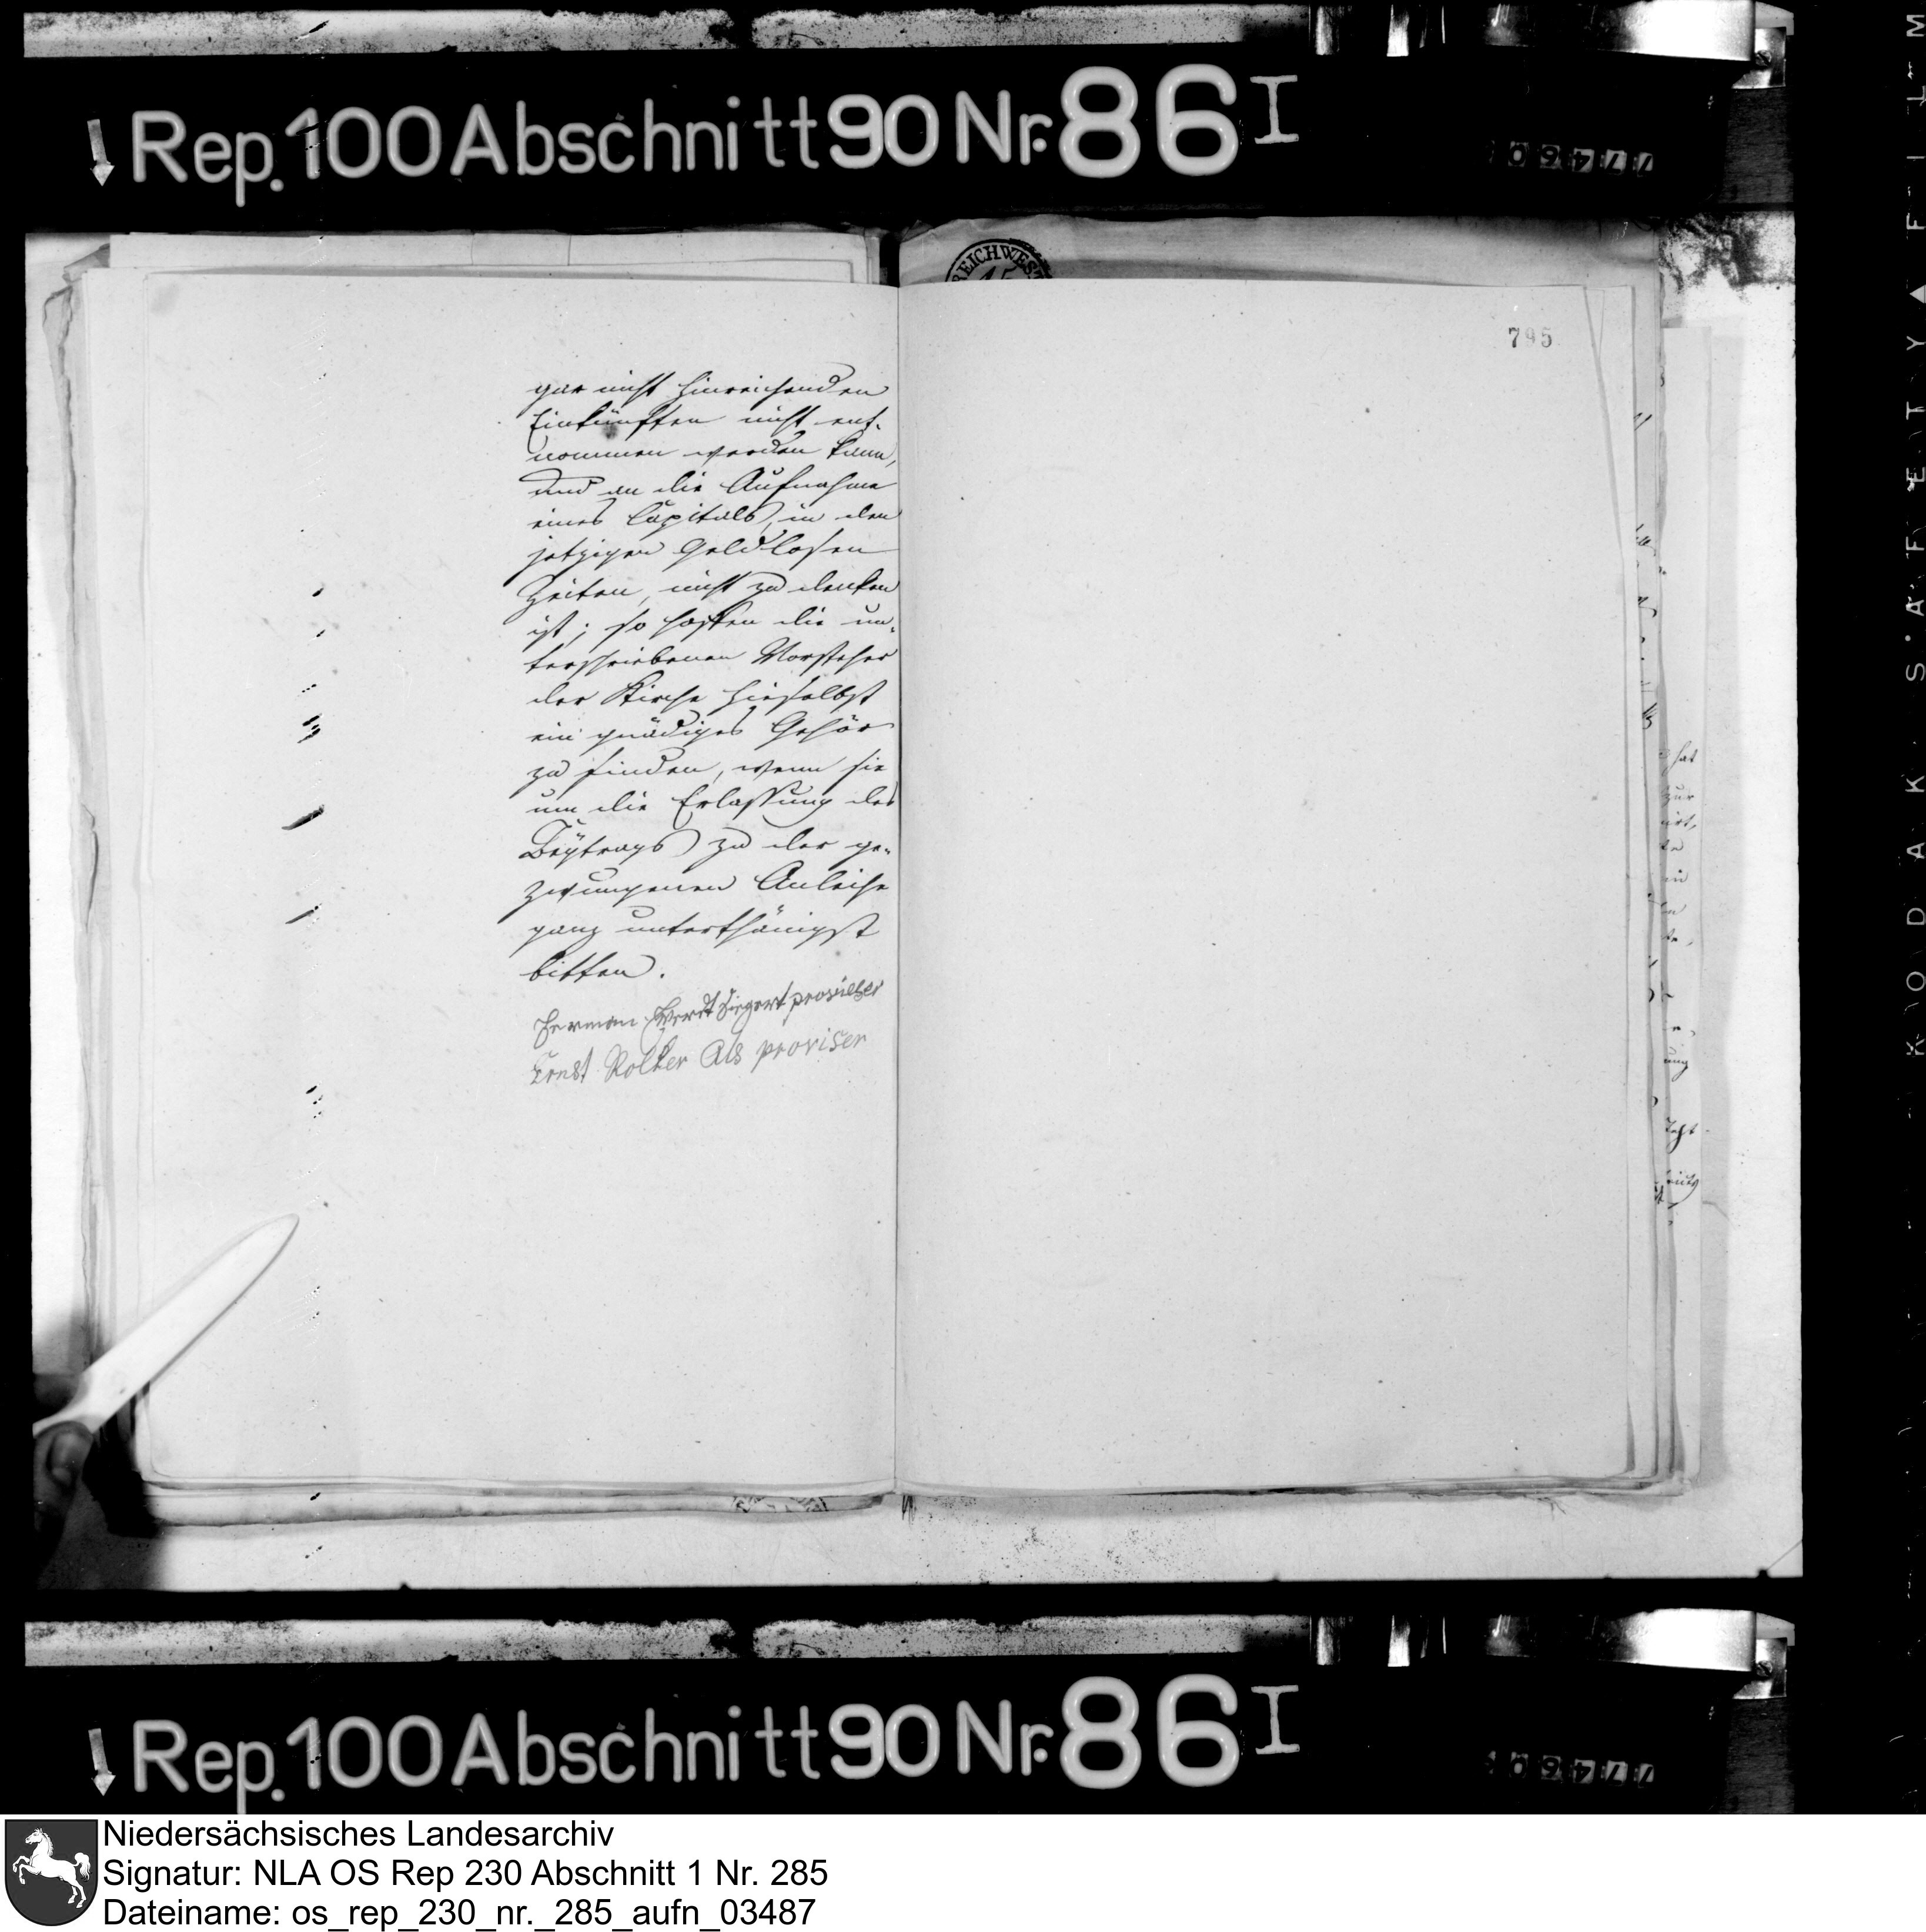 Rep. 100 Abschnitt 90 Nr. 86 I
REICH WEST
795
gar nicht hinreichenden
Einkünften nicht ent-
nommen werden kann,
und an die Aufnahme
eines Capitals, in den
jetzigen Geldlosen
Zeiten, nicht zu denken
ist; so hoffen die un-
terschriebenen Vorsteher
der Kirche hieselbst
ein gnädiges Gehör
zu finden, wenn sie
um die Erlassung des
Beÿtrags zu der ge-
zwungenen Anleihe
ganz unterthänigst
bitten.
Herman Siegert
Ernst Rolker Als proviser
Rep. 100 Abschnitt 90 Nr. 86 I
KODAK SAFETY
Niedersächsisches Landesarchiv
Signatur: NLA OS Rep 230 Abschnitt 1 Nr. 285
Dateiname: os_rep_230_nr._285_aufn_03487